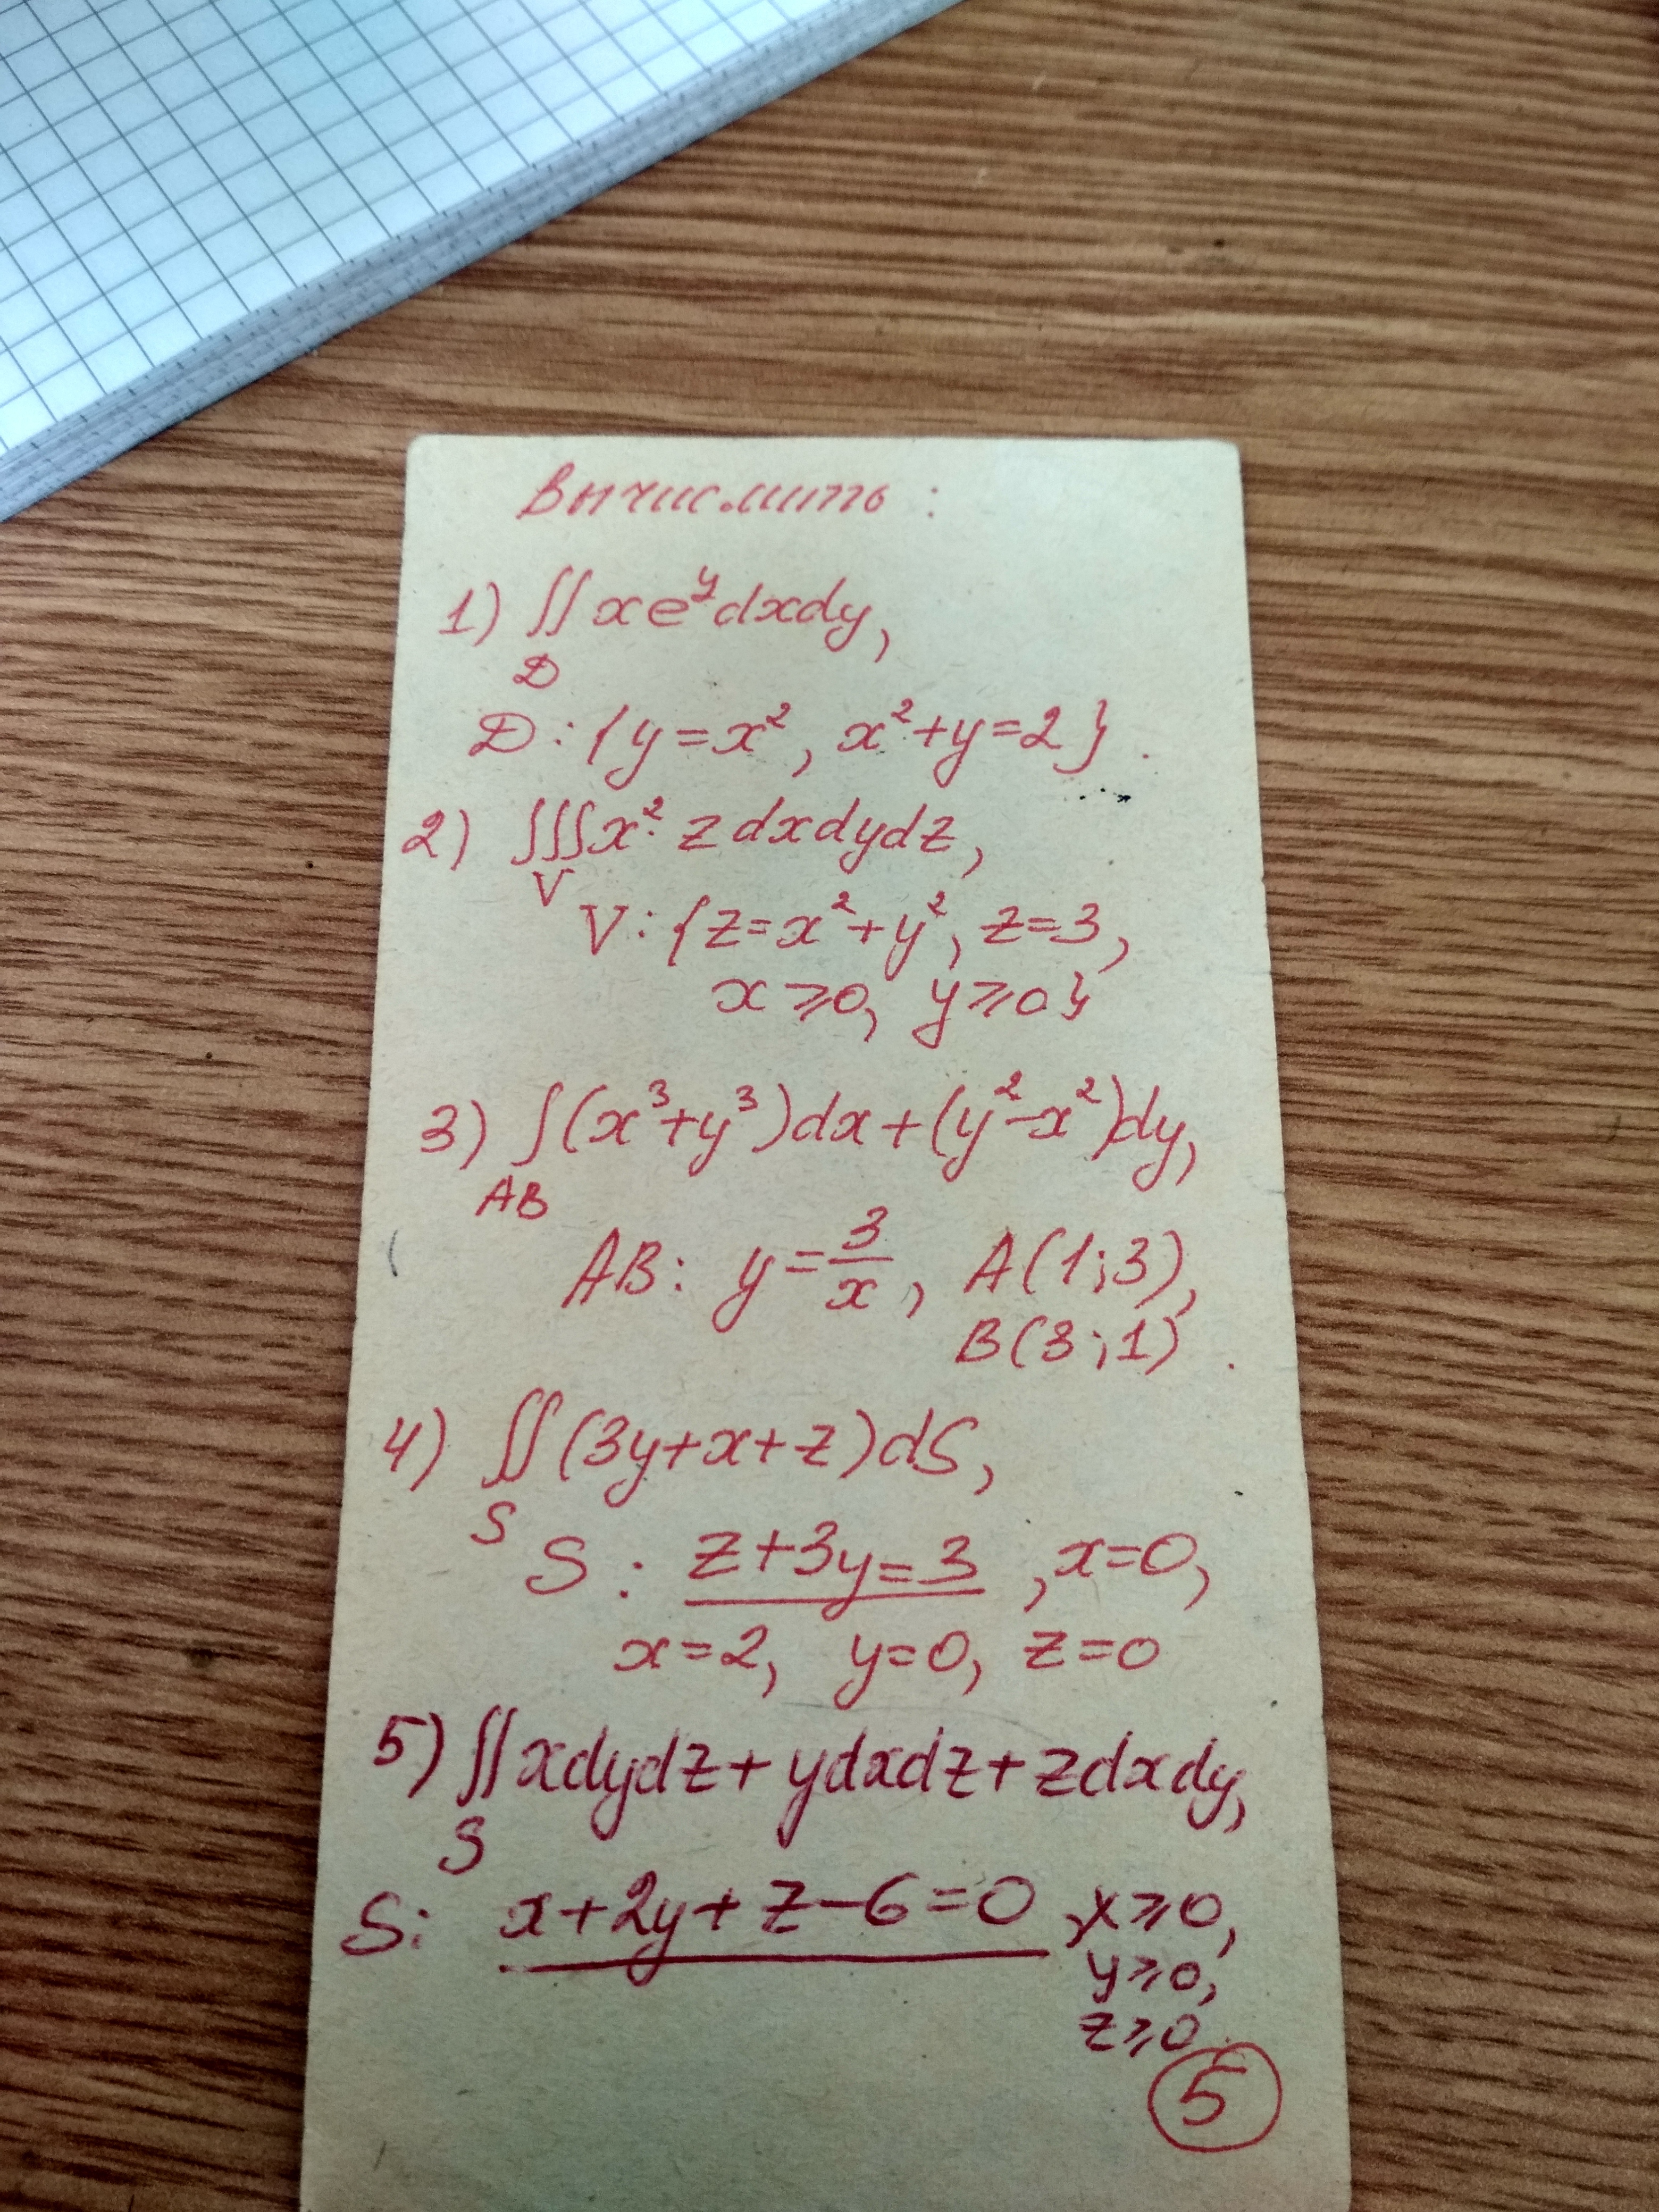 Вычислить:
1) ∬ x e^y dxdy,
D
D: {y = x², x² + y = 2}.
2) ∭ x² z dxdydz,
V
V: {z = x² + y², z = 3,
x ⩾ 0, y ⩾ 0}
3) ∫ (x³ + y³)dx + (y² - x²)dy,
AB
AB: y = 3/x, A(1; 3),
B(3; 1).
4) ∬ (3y + x + z)dS,
S
S: z + 3y = 3, x = 0,
x = 2, y = 0, z = 0
5) ∬ xdydz + ydxdz + zdxdy,
S
S: x + 2y + z - 6 = 0, x ⩾ 0,
y ⩾ 0,
z ⩾ 0.
5